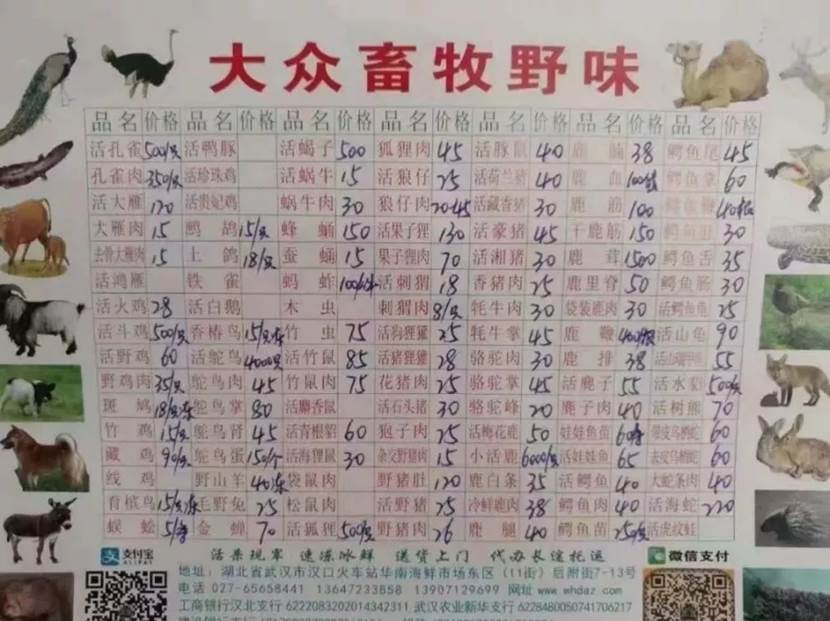 大众畜牧野味
品名 价格 品名 价格 品名 价格 品名 价格 品名 价格 品名 价格 品名 价格
活孔雀 500/只 活鸭豚 活蝎子 500 狐狸肉 45 活豚鼠 40 鹿脯 38 鳄鱼尾 45
孔雀肉 350/只 活珍珠鸡 活蜗牛 15 活狼仔 25 活荷兰猪 40 鹿血 鳄鱼掌 60
活大雁 120 活贵妃鸡 蜗牛肉 30 狼仔肉 20-45 活藏香猪 30 鹿筋 100 鳄鱼
大雁肉 15 鹧鸪 15/只 蜂蛹 150 活果子狸 130 活豪猪 45 干鹿筋 150 鳄鱼肚 30
去骨大雁肉 15 土鸽 18/只 蚕蛹 15 果子狸肉 70 活湘猪 30 鹿茸 1500 鳄鱼舌 35
活鸿雁 铁雀 蚂蚱 活刺猬 18 香猪肉 25 鹿里脊 50 鳄鱼肠 30
活火鸡 28 活白鹅 木虫 刺猬肉 8/只 牦牛肉 30 袋装鹿肉 30 活鳄鱼龟 25
活斗鸡 500/只 香椿鸟 竹虫 75 活狗狸獾 25 牦牛掌 45 鹿鞭 活山龟 90
活野鸡 60 活鸵鸟 4000/只 活竹鼠 85 活猪狸獾 28 骆驼肉 30 鹿排 38 55
野鸡肉 35/只 鸵鸟肉 45 竹鼠肉 75 花猪肉 25 骆驼掌 45 活麂子 55 活水貂 500/只
斑鸠 鸵鸟掌 80 活麝香鼠 活石头猪 30 骆驼峰 20 麂子肉 40 活树熊 70
竹鸡 15/只 鸵鸟肾 45 活青根貂 60 狍子肉 25 活梅花鹿 50 娃娃鱼苗 60
藏鸡 90/只 鸵鸟蛋 150/个 活海狸鼠 30 杂交野猪肉 15 小活鹿 6000/只 活娃娃鱼 65 60
线鸡 野山羊 袋鼠肉 野猪肚 120 鹿白条 35 活鳄鱼 40 大蛇条肉 40
育槟鸟 毛野兔 25 松鼠肉 活野猪 25 冷鲜鹿肉 38 鳄鱼肉 40 活海蛇 220
蜈蚣 金蝉 70 活狐狸 500/只 野猪肉 26 鹿腿 40 鳄鱼苗 活虎纹蛙
活杀现宰 速冻冰鲜 送货上门 代办长途托运
支付宝
ALIPAY
微信支付
地址：湖北省武汉市汉口火车站华南海鲜市场东区（11街）后附街7-13号
电话 027-65658441 13647233858 13907129699 网址 www.whdaz.com
工商银行汉北支行 6222083202014342311 武汉农业新华支行 6228480050741706217